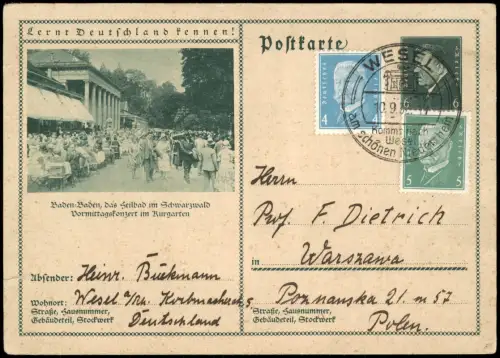 Lernt Deutschland kennen!
Postkarte
WESEL
Kommt nach
Wesel
am schönen Niederrhein
Deutsches
4
4
6
5
5
Baden-Baden, das Heilbad im Schwarzwald
Vormittagskonzert im Kurgarten
Herrn
Prof. F. Dietrich
in Warszawa
Poznanska 21. m 57
Polen.
Straße, Hausnummer,
Gebäudeteil, Stockwerk
Absender: Heinr.
Wohnort: Wesel
Straße, Hausnummer,
Gebäudeteil, Stockwerk
Deutschland